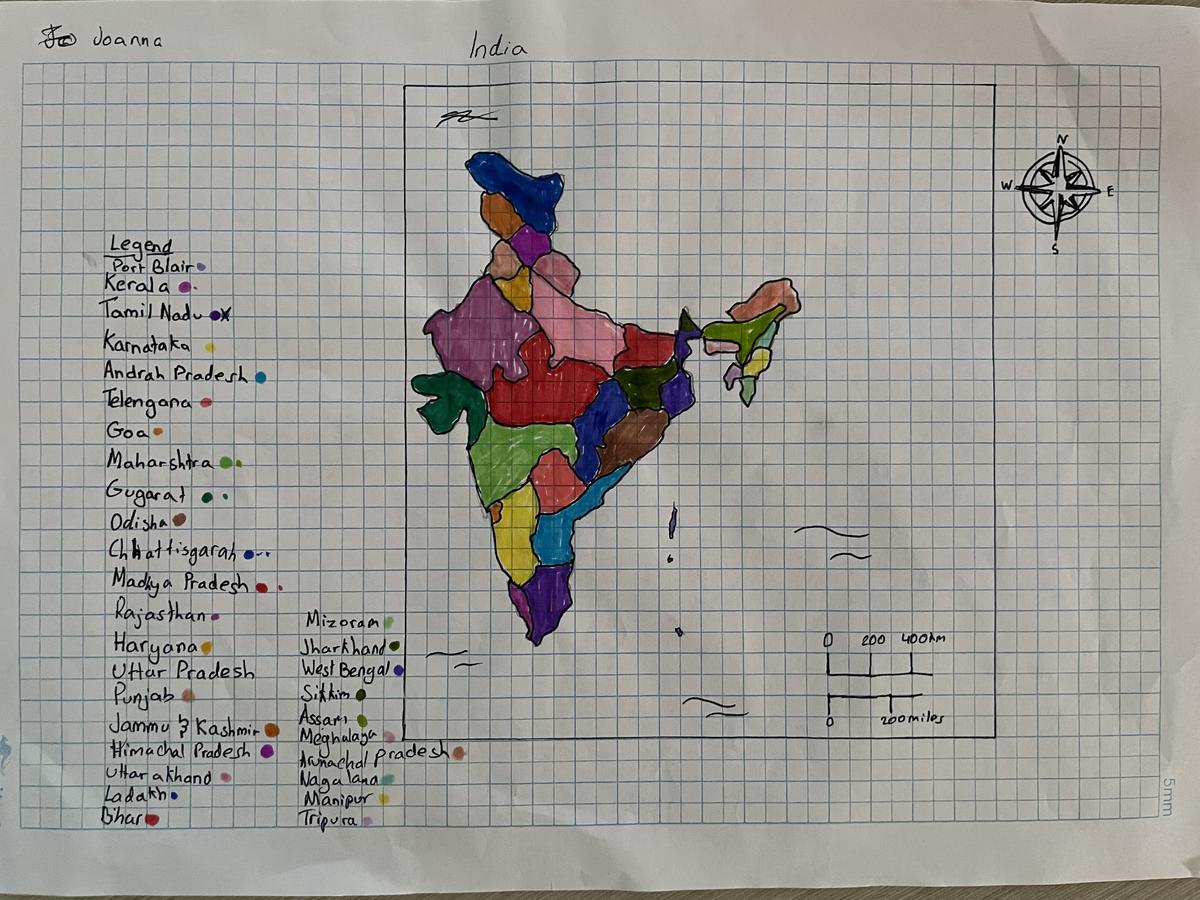 Joanna
India
N
W E
S
Legend
Port Blair
Kerala
Tamil Nadu
Karnataka
Andrah Pradesh
Telengana
Goa
Maharshtra
Gugarat
Odisha
Chhattisgarah
Madhya Pradesh
Rajasthan
Haryana
Uttar Pradesh
Punjab
Jammu & Kashmir
Himachal Pradesh
Uttarakhand
Ladakh
Bihar
Mizoram
Jharkhand
West Bengal
Sikkim
Assam
Meghalaya
Arunachal Pradesh
Nagaland
Manipur
Tripura
0 200 400km
0 200miles
5mm